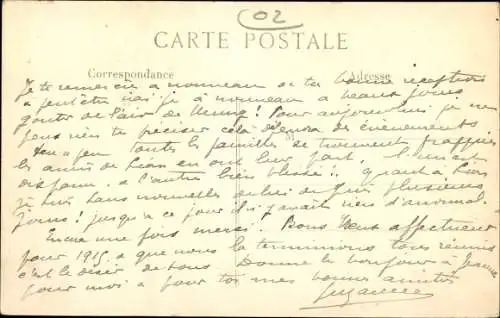 02
CARTE POSTALE
Correspondance
Adresse
Je te remercie à nouveau de ta bonne réception
à nouveau à beaux jours
goûter de l'air de Meung ! Pour aujourd'hui je ne
peux rien te préciser cela dépendra des évènements
Peu à peu toutes les familles se trouvent frappées
les amis de Lison en ont leur part. L'un est
disparu & l'autre bien blessé ! quant à
je suis sans nouvelles de lui depuis plusieurs
jours ! jusqu'à ce jour il n'y avait rien d'anormal.
Encore une fois merci. Bons voeux affectueux
pour 1915 & que nous la terminions tous réunis
c'est le désir de tous Donne le bonjour à Jeanne
pour moi & pour toi mes bonnes amitiés
Suzanne